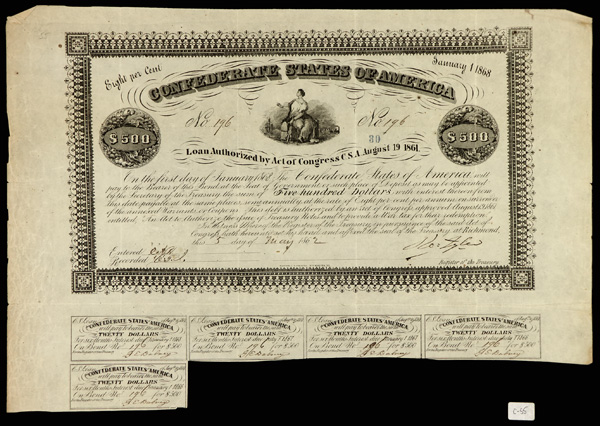 Eight per Cent
January 1 1868
CONFEDERATE STATES OF AMERICA
No 196
No 196
80
$500
$500
Loan Authorized by Act of Congress C.S.A. August 19 1861.
On the first day of January 1868, The Confederate States of America, will
pay to the Bearer of this Bond, at the Seat of Government, or such place of Deposit as may be appointed
by the Secretary of the Treasury, the sum of Five hundred Dollars with interest thereon from
date, payable at the same places, semi-annually, at the rate of Eight per cent per annum, on surrender
of the annexed Warrants or Coupons. This debt is authorized by an Act of Congress approved
entitled "An Act to Authorize the Issue of Treasury Notes, and to provide a War tax for their redemption"
In Witness Whereof the Register of the Treasury in pursuance of the said Act of
Congress, hath hereunto set his hand and affixed the seal of the Treasury at Richmond,
this 5 day of May 1862
Entered
Recorded
Register of the Treasury
CONFEDERATE STATES AMERICA
will pay to bearer
TWENTY DOLLARS
For six months Interest due January 1
On Bond No 196 for $500
CONFEDERATE STATES AMERICA
will pay to bearer
TWENTY DOLLARS
For six months Interest due July 1 1867
On Bond No 196 for $500
CONFEDERATE STATES AMERICA
will pay to bearer
TWENTY DOLLARS
For six months Interest due January 1
On Bond No 196 for $500
CONFEDERATE STATES AMERICA
will pay to bearer
TWENTY DOLLARS
For six months Interest due July 1
On Bond No 196 for $500
CONFEDERATE STATES AMERICA
will pay to bearer
TWENTY DOLLARS
For six months Interest due January 1
On Bond No 196 for $500